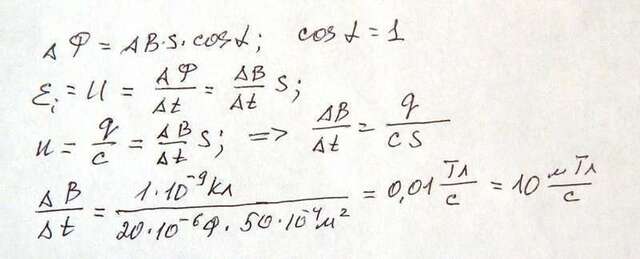 ΔΦ = ΔB·S·cosα; cosα = 1
Ɛi = U = ΔΦ/Δt = ΔB/Δt S;
u = q/c = ΔB/Δt S; => ΔB/Δt = q/cS
ΔB/Δt = 1·10⁻⁹Кл/20·10⁻⁶Ф·50·10⁻⁴м² = 0,01 Тл/с = 10 мТл/с